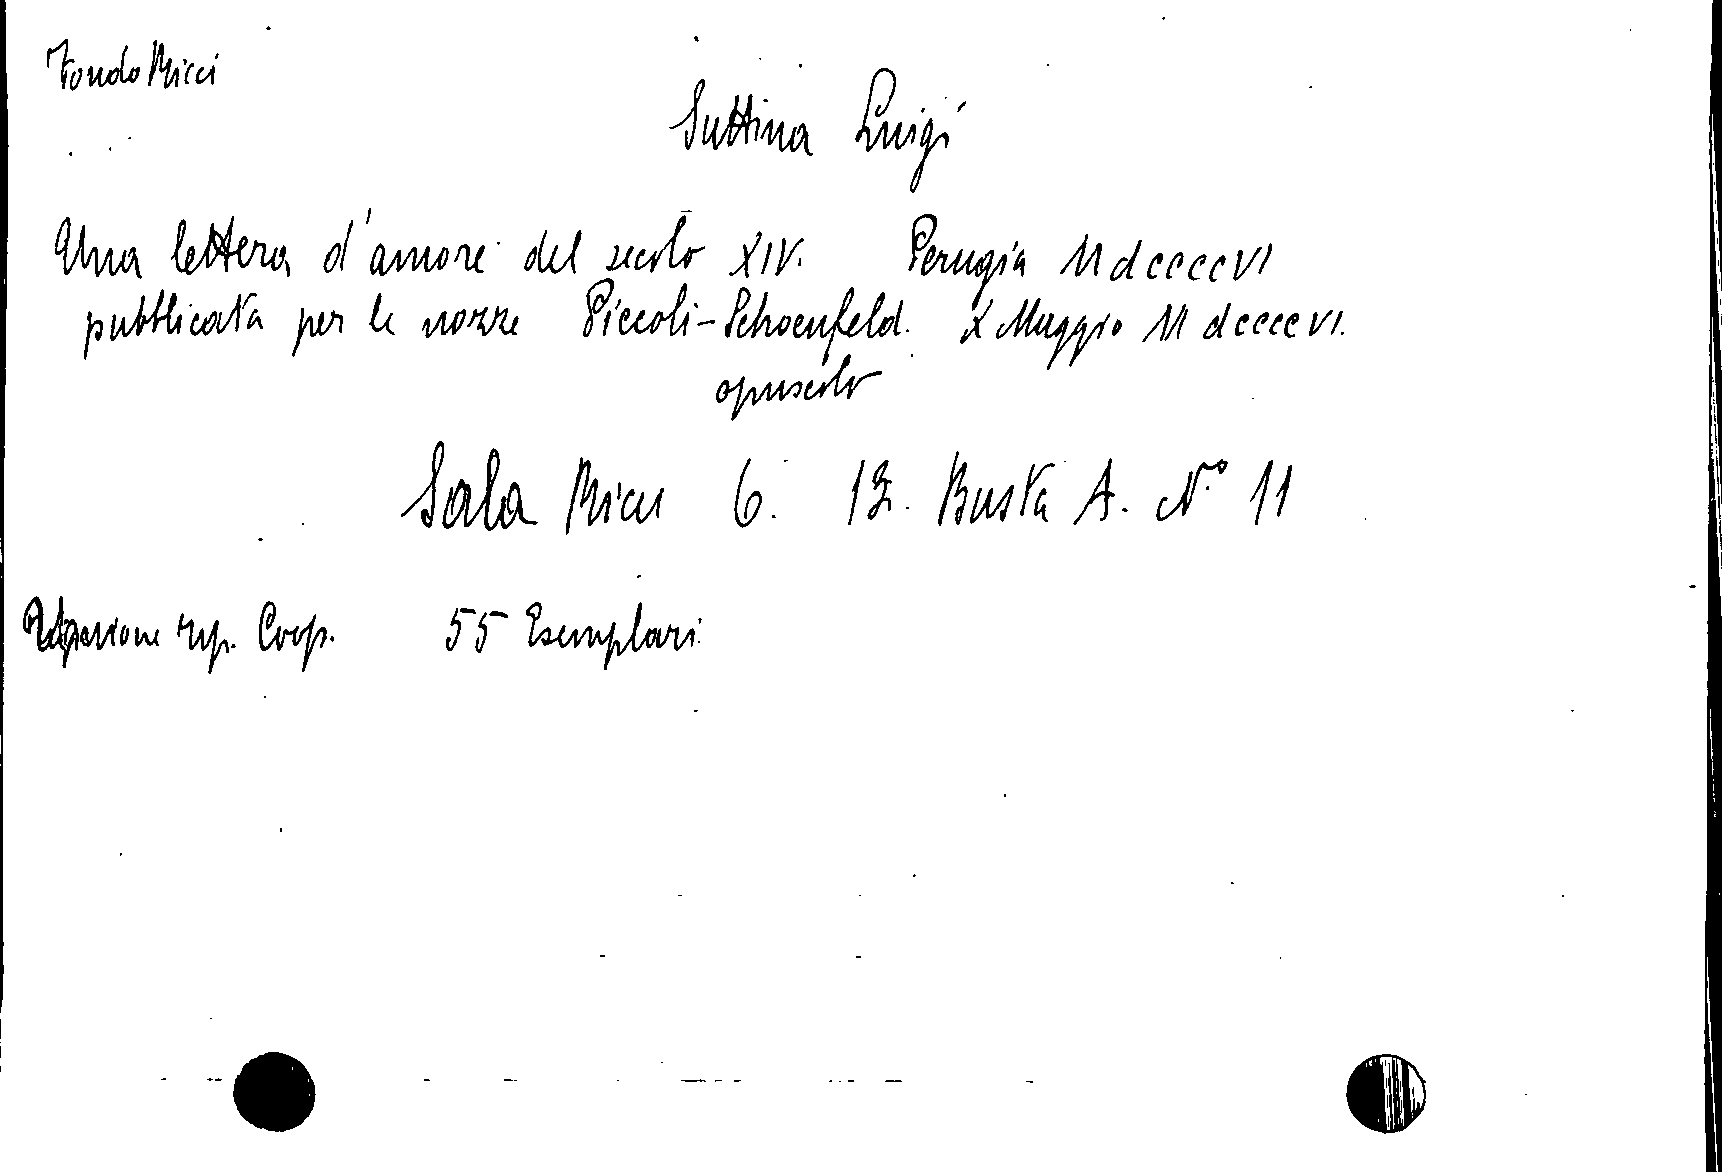 Fondo Ricci
Suttina Luigi
Una lettera d'amore del secolo XIV. Perugia MdccccVI
pubblicata per le nozze Piccoli-Schoenfeld. X Maggio MdccccVI.
opuscolo
Sala Ricci 6. 12. Busta A. N.º 11
tip. Coop. 55 Esemplari